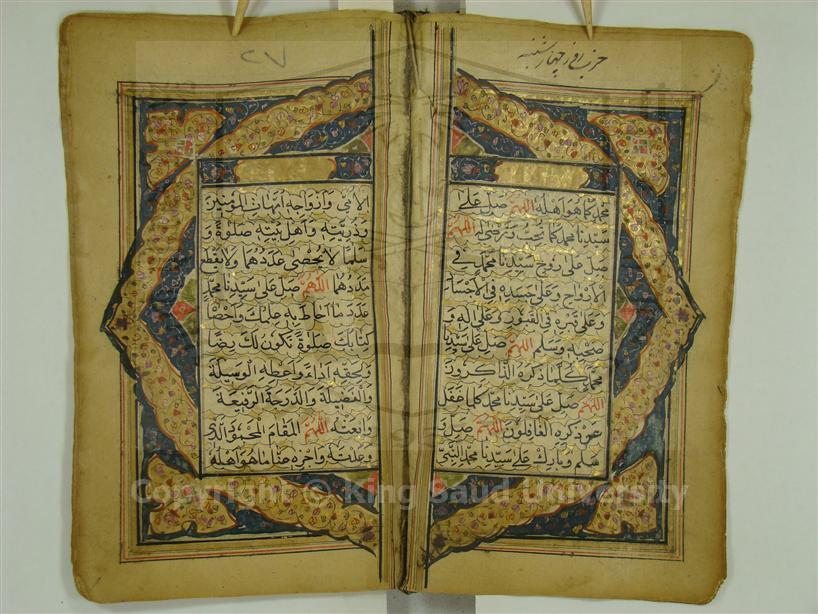 حزب روز چهارشنبه
محمد كما هو اهله اللهم صل على
سيدنا محمد كما تحب وترضى له اللهم
صل على روح سيدنا محمد في
الارواح وعلى جسده في الاجساد
وعلى قبره في القبور وعلى اله و
صحبه وسلم اللهم صل على سيدنا
محمد كلما ذكره الذاكرون
اللهم صل على سيدنا محمد كلما غفل
عن ذكره الغافلون اللهم صل و
سلم وبارك على سيدنا محمد النبي
٢٧
الامي وازواجه امهات المؤمنين
وذريته واهل بيته صلوة و
سلاما لا يحصى عددهما ولا يقطع
مددهما اللهم صل على سيدنا محمد
عدد ما احاط به علمك واحصاه
كتابك صلوة تكون لك رضا
ولحقه اداء واعطه الوسيلة
والفضيلة والدرجة الرفيعة
وابعثه اللهم المقام المحمود الذي
وعدته واجزه عنا ما هو اهله
Copyright © King Saud University